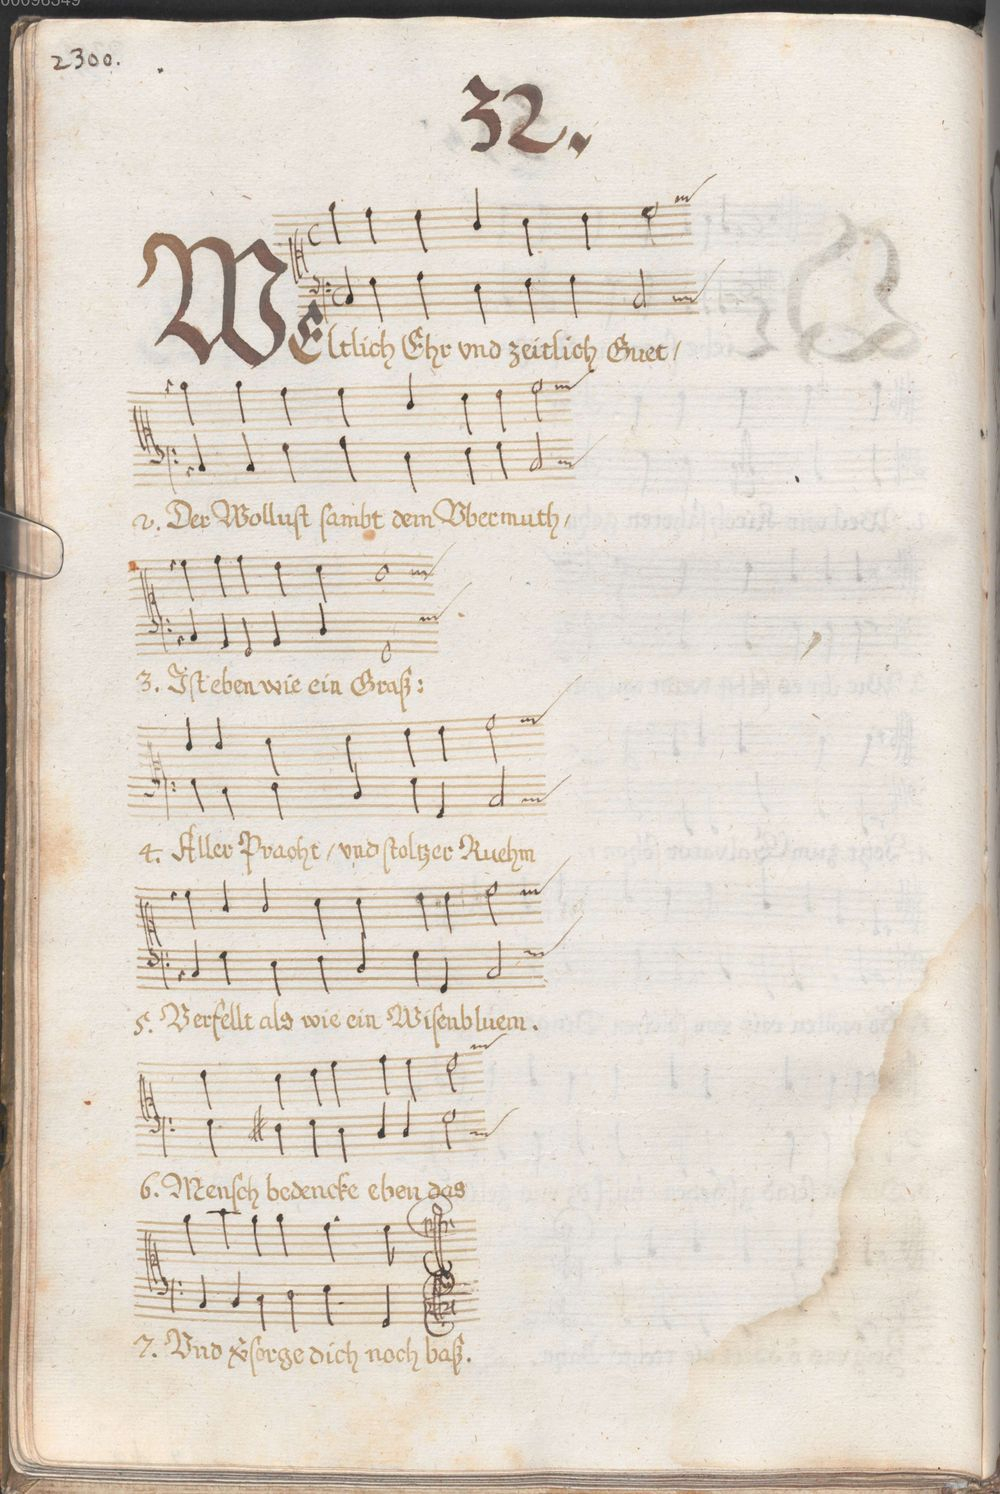 00098349
2300.
32.
WEltlich Ehr vnd zeitlich Guet /
2. Der Wollust sambt dem Vbermuth /
3. Ist eben wie ein Graß:
4. Aller Pracht / vnd stoltzer Ruehm
5. Verfellt als wie ein Wisenbluem.
6. Mensch bedencke eben das
7. Vnd v̈sorge dich noch baß.